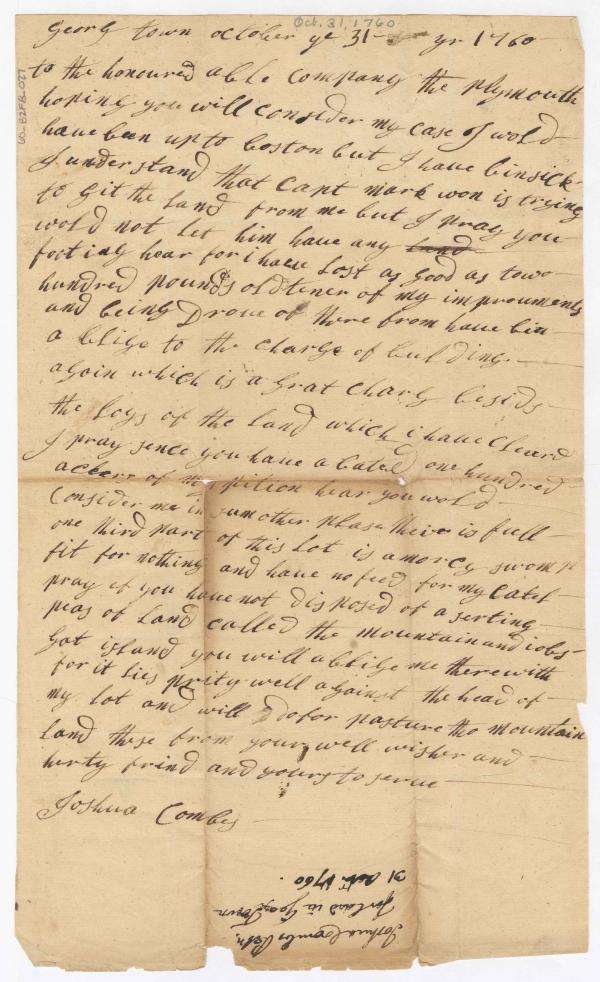 Oct. 31, 1760
Georg town october ye 31 yr 1760
to the honoured able company the plymouth
hoping you will consider my case I wold
have been up to boston but I have bin sick
I understand that Capt mark won is trying
to git the land from me but I pray you
wold not let him have any land
footing hear for I haue Lost as good as towo
hundred pounds old tener of my improuments
and being Droue of there from have bin
a blige to the charge of bulding
again which is a grat charg besids
the loys of the land which i have cleard
I pray sence you have a bated one hundred
ackers of my pition hear you wold
Consider me in sum other plase theire is full
one third part of this lot is a morcy swomp
fit for nothing and have no feed for my catel
pray if you have not disposed of a serting
peas of land called the mountain and iobs
gat island you will ablige me therewith
for it lies prity well against the head of
my lot and will do for pasture tho mountain
land these from your well wisher and
herty frind and yours to serue
Joshua Combes
Joshua Coombs Petn.
for land in George Town
31 Octr. 1760.